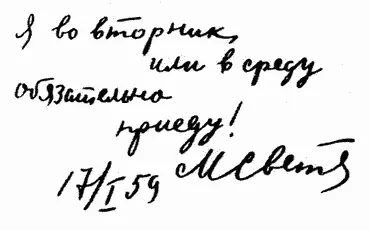 Я во вторник,
или в среду
обязательно
приеду!
17/I 59 МСветл